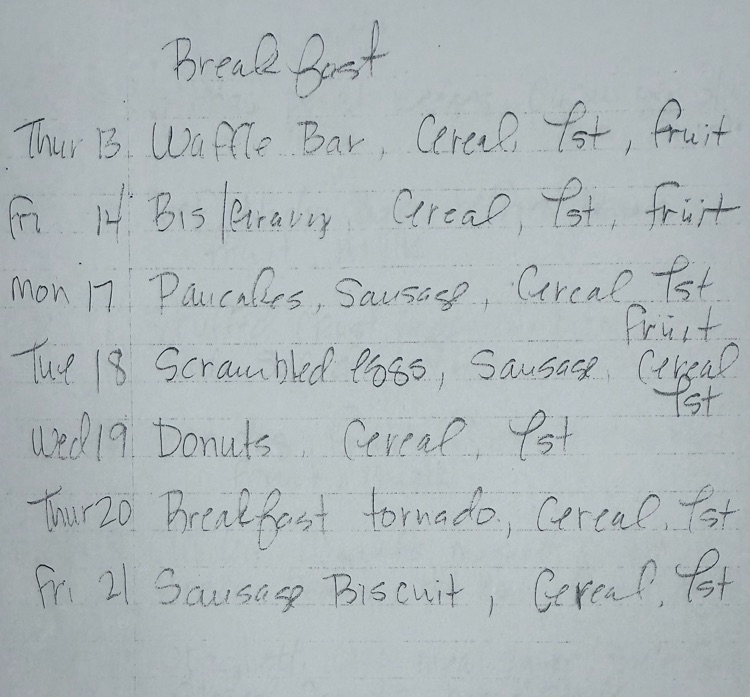 Breakfast
Thur 13 Waffle Bar, Cereal, Tst, fruit
Fri 14 Bis/Gravy, Cereal, Tst, fruit
Mon 17 Pancakes, Sausage, Cereal Tst
fruit
Tue 18 Scrambled eggs, Sausage, Cereal
Tst
Wed 19 Donuts, Cereal, Tst
Thur 20 Breakfast tornado, Cereal, Tst
Fri 21 Sausage Biscuit, Cereal, Tst